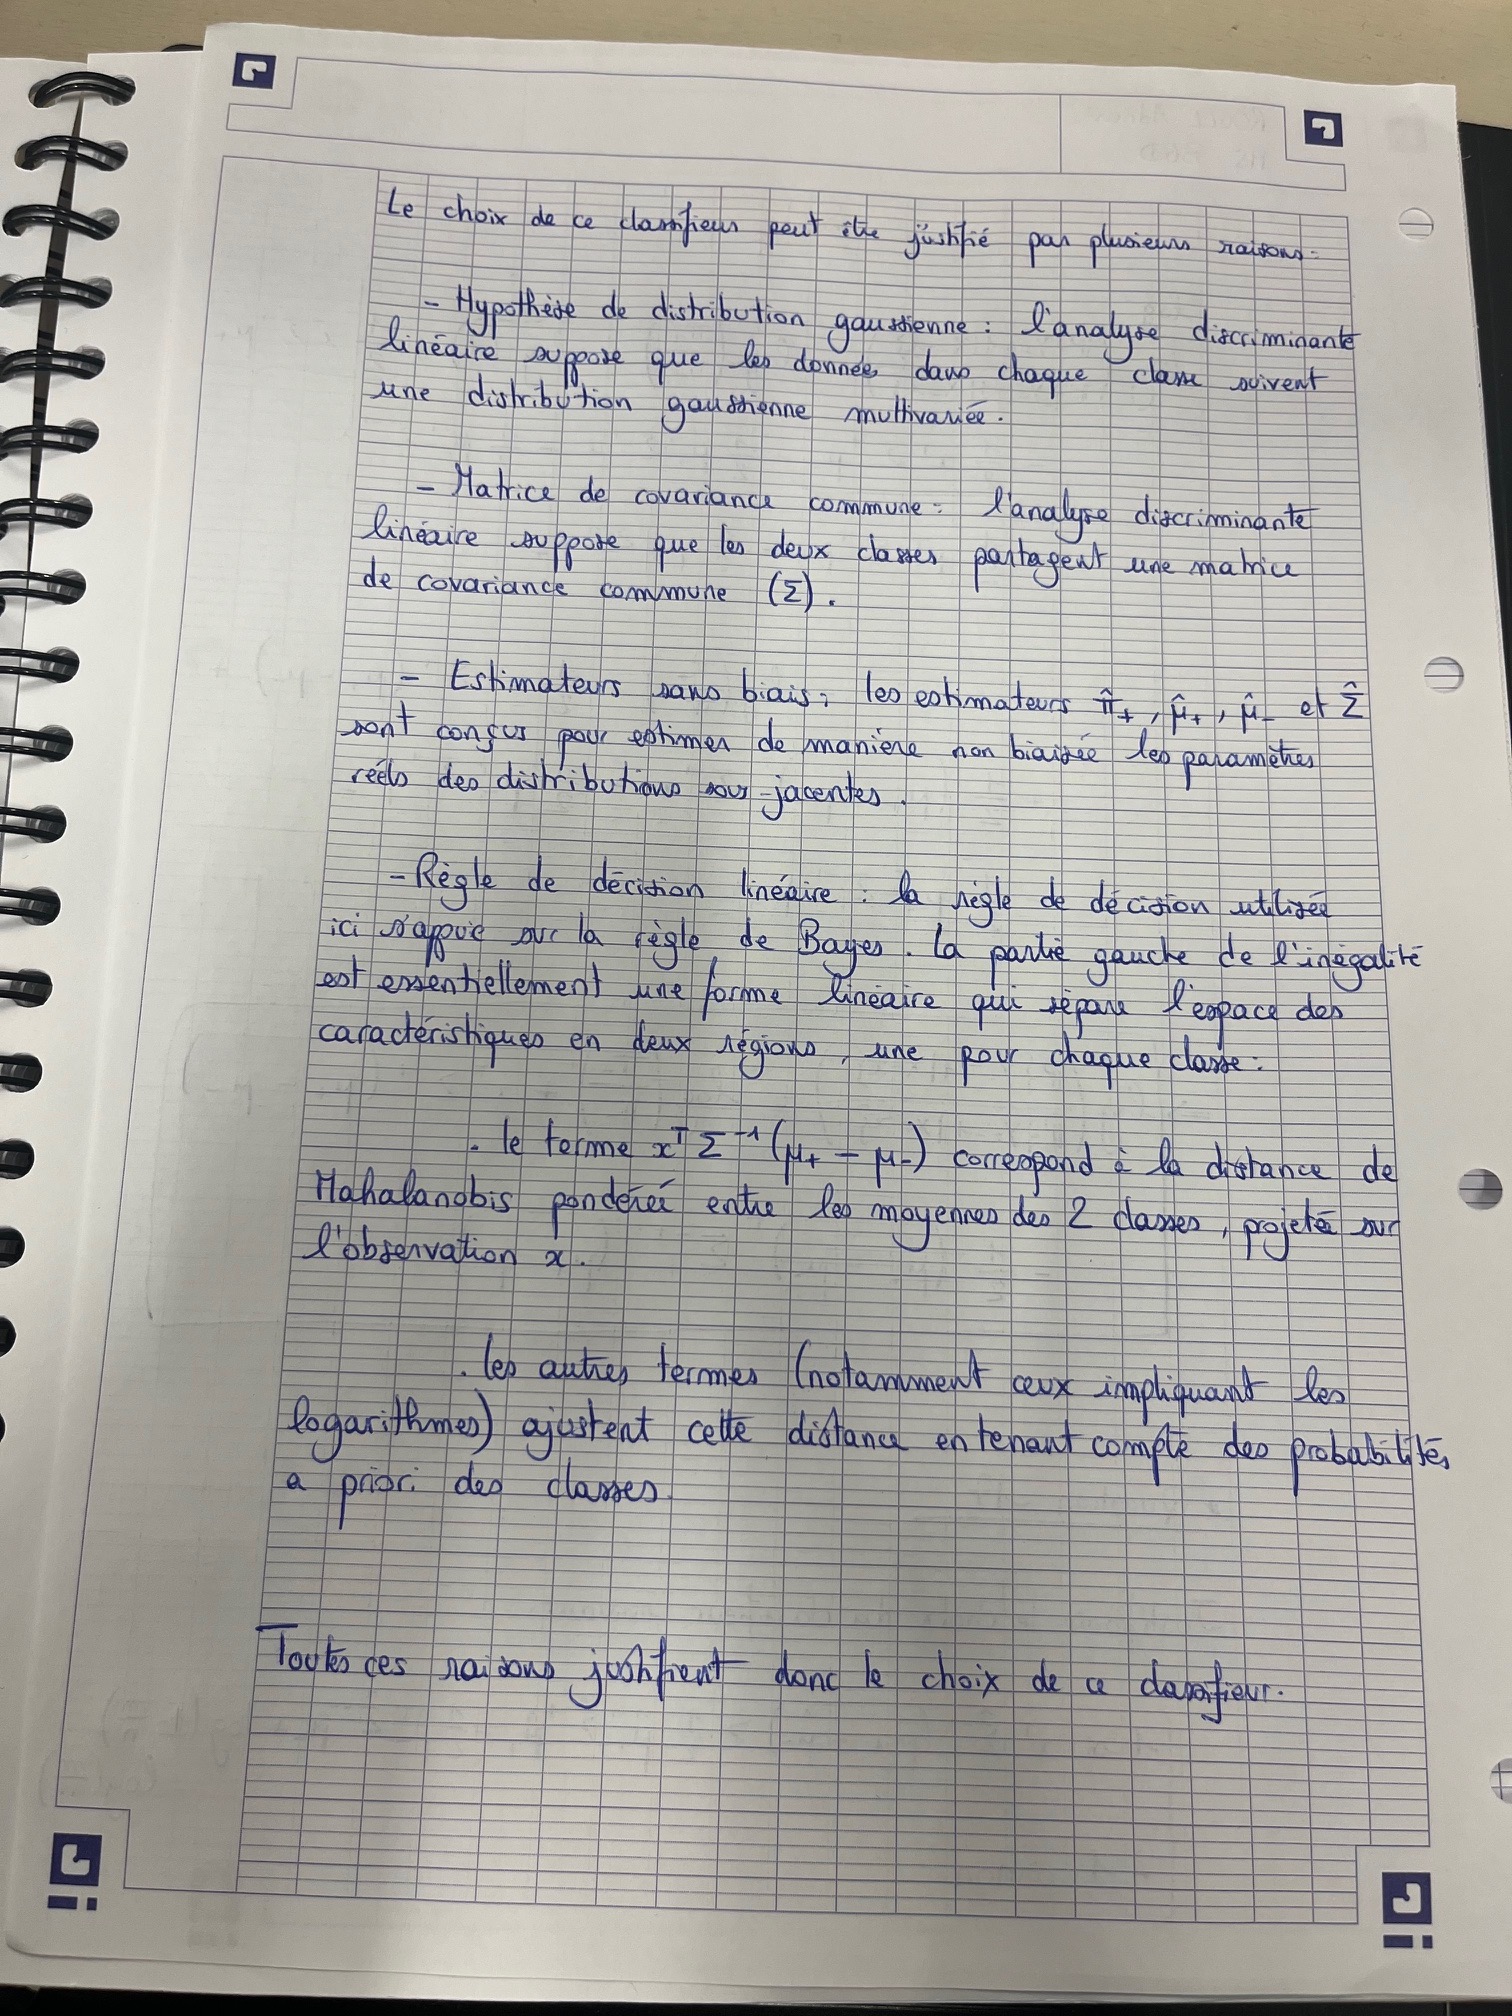 Le choix de ce classifieur peut être justifié par plusieurs raisons :
- Hypothèse de distribution gaussienne : l'analyse discriminante
linéaire suppose que les données dans chaque classe suivent
une distribution gaussienne multivariée.
- Matrice de covariance commune : l'analyse discriminante
linéaire suppose que les deux classes partagent une matrice
de covariance commune (Σ).
- Estimateurs sans biais : les estimateurs π̂₊, μ̂₊, μ̂₋ et Σ̂
sont conçus pour estimer de manière non biaisée les paramètres
réels des distributions sous-jacentes.
- Règle de décision linéaire : la règle de décision utilisée
ici s'appuie sur la règle de Bayes. La partie gauche de l'inégalité
est essentiellement une forme linéaire qui sépare l'espace des
caractéristiques en deux régions, une pour chaque classe :
. le terme xᵀ Σ⁻¹ (μ₊ - μ₋) correspond à la distance de
Mahalanobis pondérée entre les moyennes des 2 classes, projeté sur
l'observation x.
. les autres termes (notamment ceux impliquant les
logarithmes) ajustent cette distance en tenant compte des probabilités
a priori des classes.
Toutes ces raisons justifient donc le choix de ce classifieur.